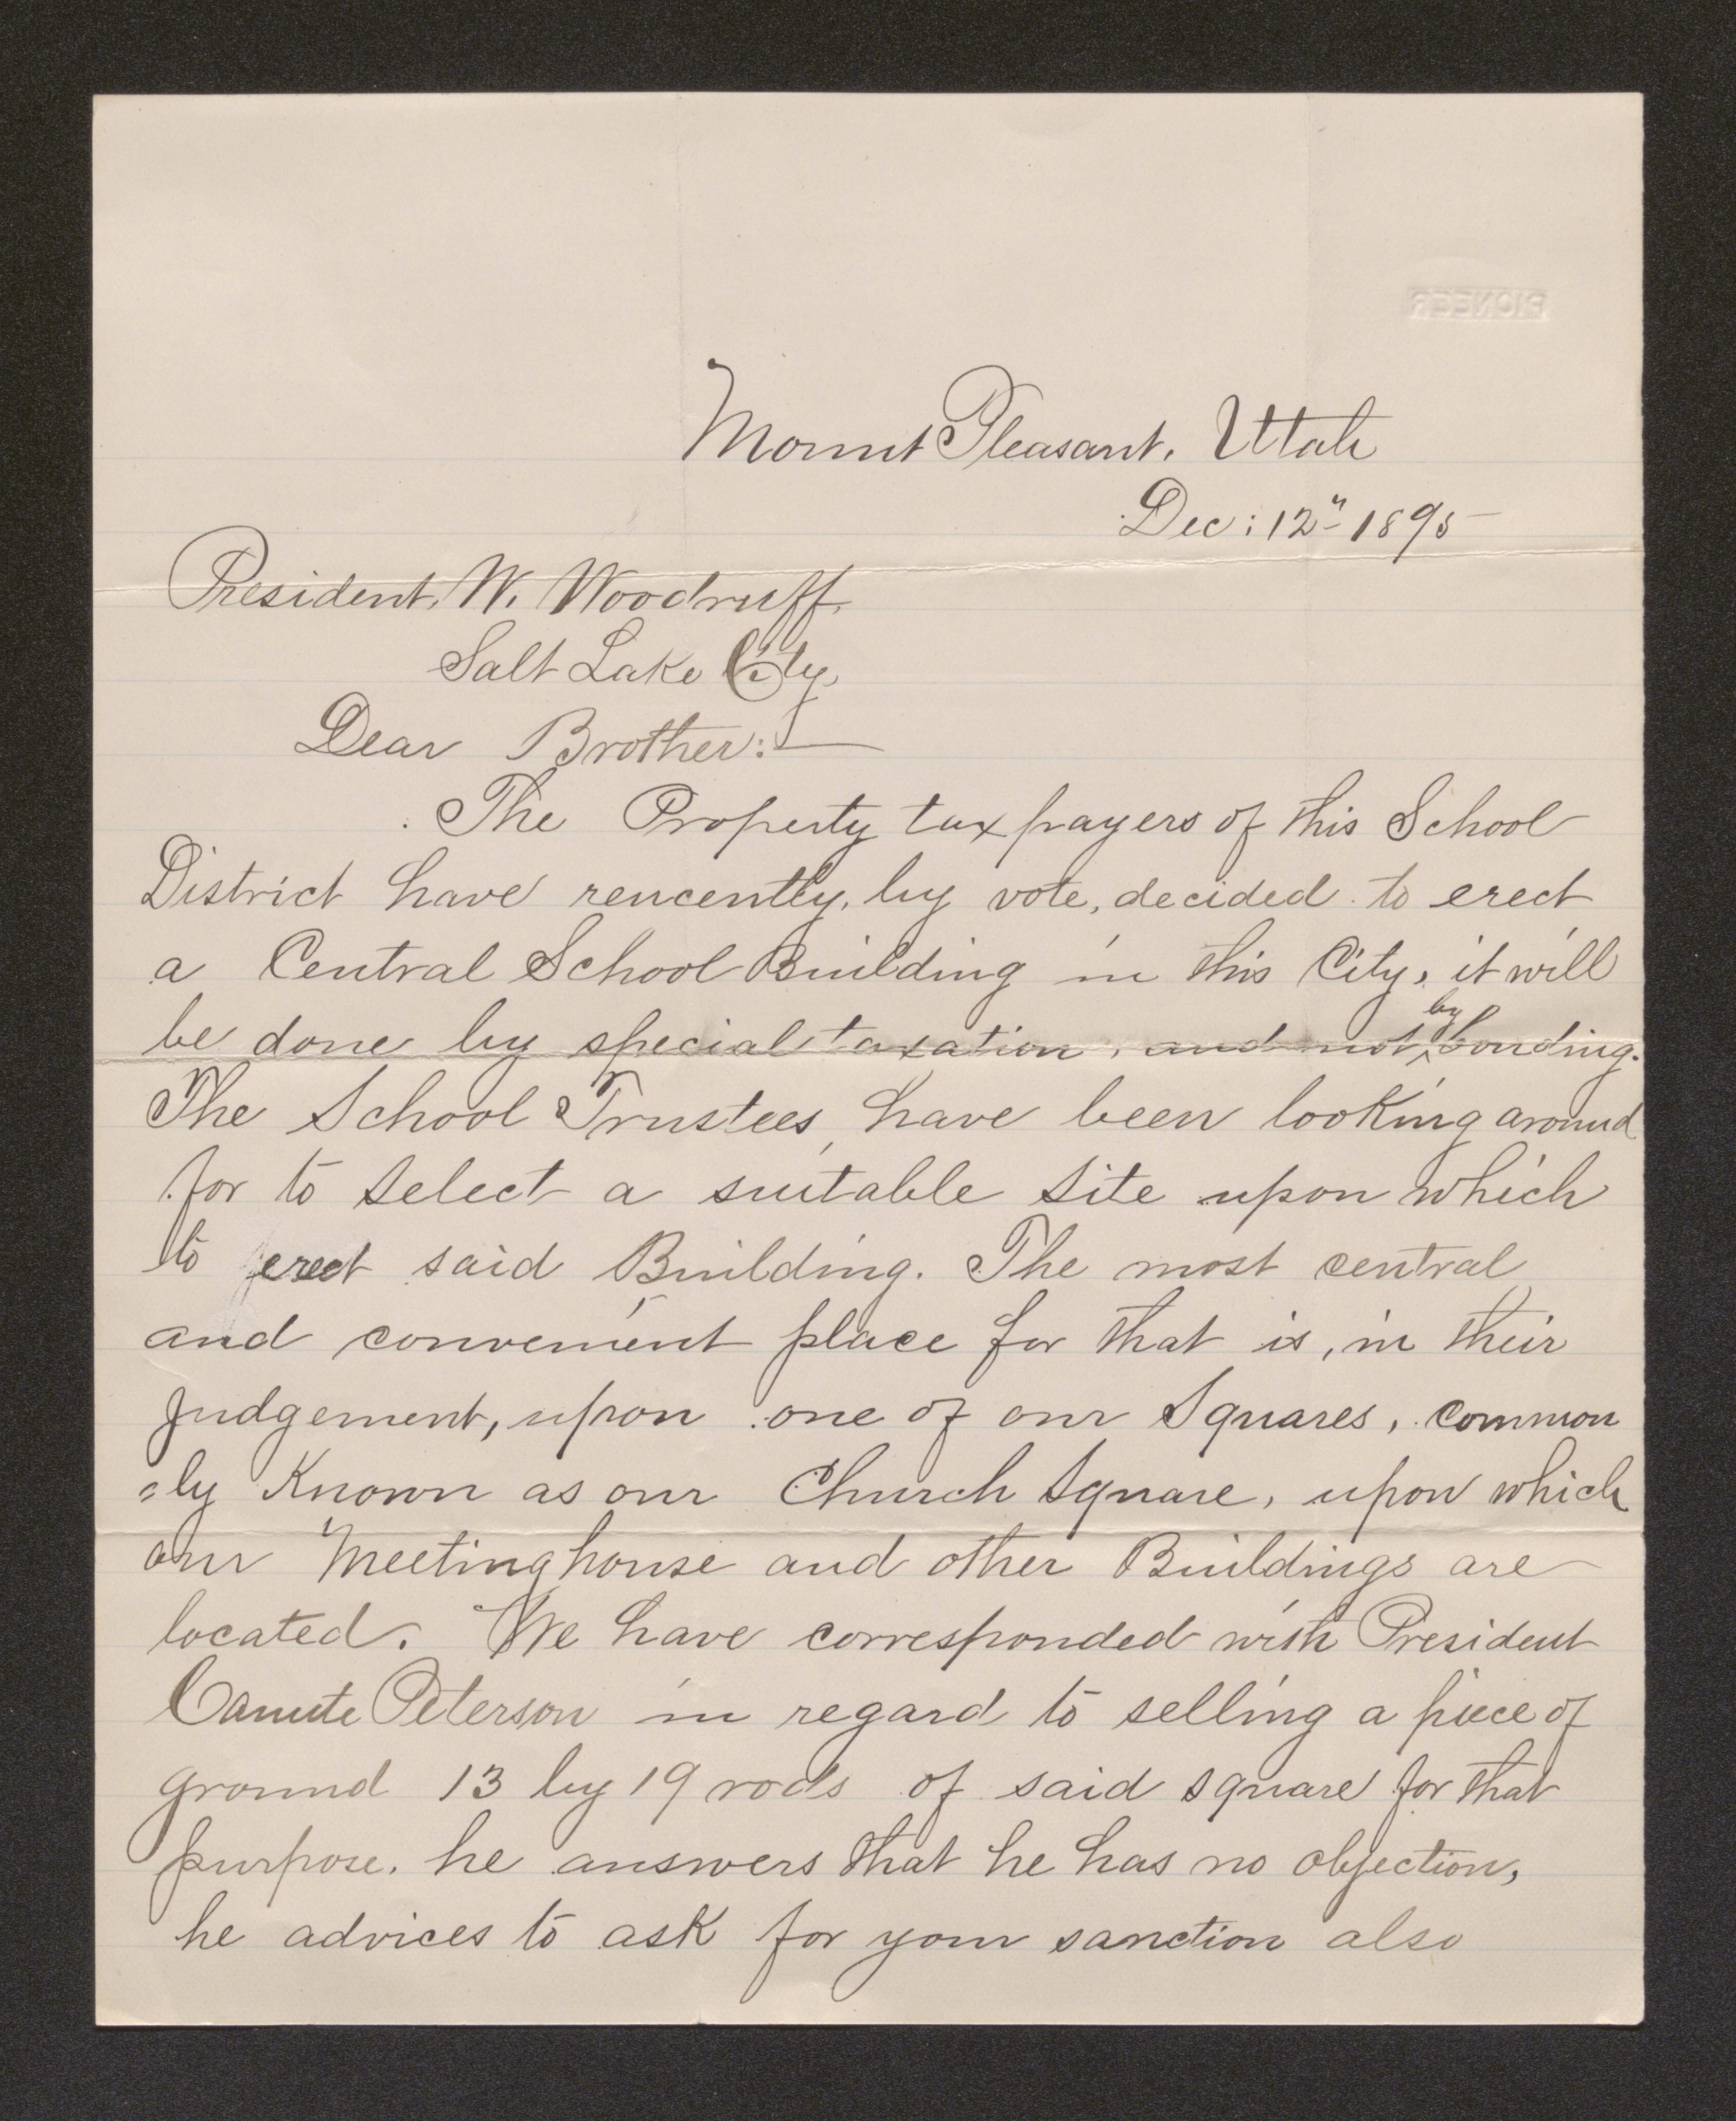 PIONEER
Mount Pleasant, Utah
Dec: 12" 1895
President, W. Woodruff,
Salt Lake City,
Dear Brother:—
The Property tax payers of this School
District have rencently, by vote, decided to erect
a Central School Building in this City, it will
be done by special taxation, and not by bonding.
The School Trustees, have been looking around
for to select a suitable site upon which
to erect said Building. The most central
and convenient place for that is, in their
judgement, upon one of our Squares, common
=ly Known as our Church Square, upon which
our Meetinghouse and other Buildings are
located. We have corresponded with President
Canute Peterson in regard to selling a piece of
ground 13 by 19 rods of said square for that
purpose. he answers that he has no objection,
he advices to ask for your sanction also